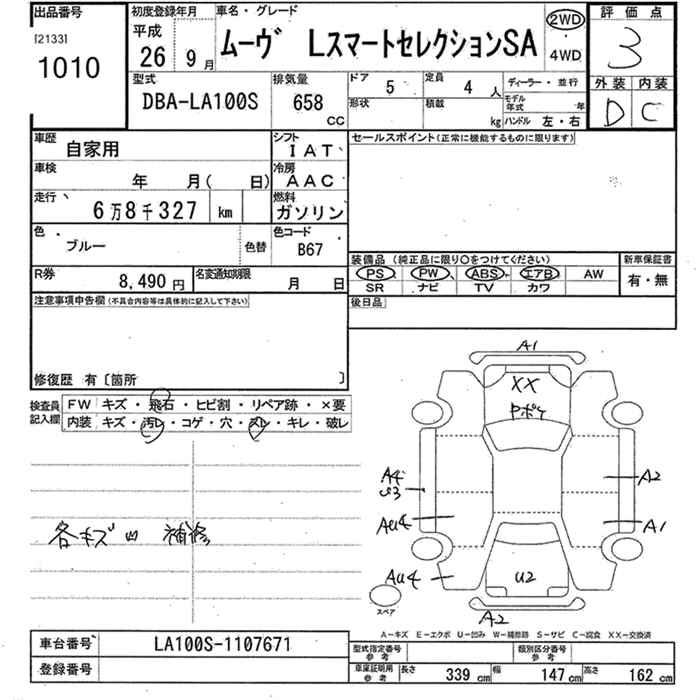 出品番号
[2133]
1010
初度登録年月
平成
26 9月
車名・グレード
ムーヴ LスマートセレクションSA
2WD
4WD
評価点
3
外装 内装
D C
型式
DBA-LA100S
排気量
658 CC
ドア 5
定員 4人
形状
積載 kg
ディーラー・並行
モデル年式 年
ハンドル 左・右
車歴 自家用
シフト IAT
車検 年 月( 日)
冷房 AAC
走行 6万8千327 km
燃料 ガソリン
色 ブルー
色替
色コード B67
R券 8,490円
名変通知期限 月 日
セールスポイント(正常に機能するものに限ります)
装備品 (純正品に限り○をつけてください)
新車保証書
PS PW ABS エアB AW
SR ナビ TV カワ
有・無
後日品
注意事項申告欄(不具合内容等は具体的に記入して下さい)
修復歴 有〔箇所 〕
検査員記入欄
FW キズ・飛石・ヒビ割・リペア跡・×要
内装 キズ・汚レ・コゲ・穴・スレ・キレ・破レ
各キズ凹 補修
A1
XX
ヤポケ
A4
U3
A2
AU4
A1
AU4
U2
A2
スペア
A-キズ E-エクボ U-凹み W-補修跡 S-サビ C-腐食 XX-交換済
車台番号 LA100S-1107671
登録番号
型式指定番号 参考
類別区分番号 参考
車庫証明用 参考
長さ 339 cm 幅 147 cm 高さ 162 cm